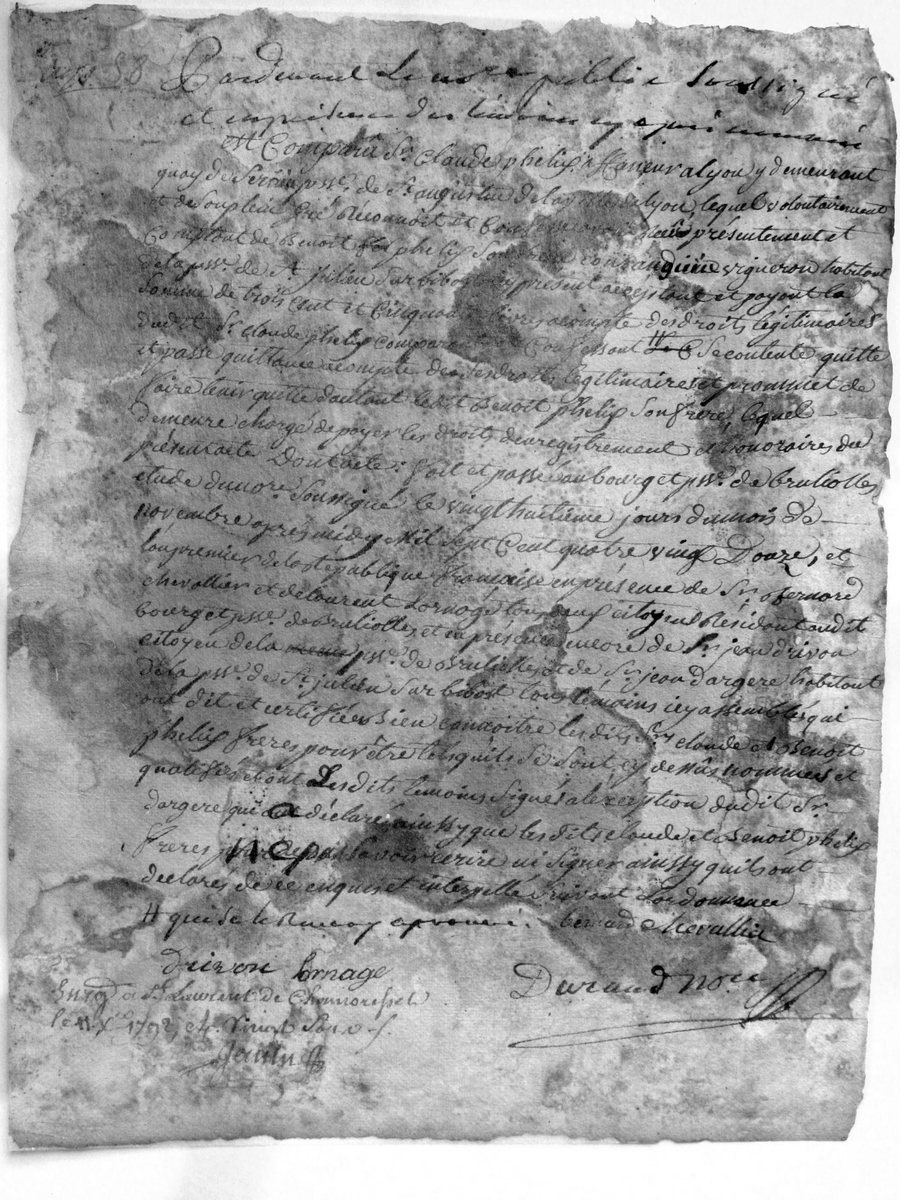 Pardevant Le no.re public Soussigné
et en présence des témoins cy après nommés
Est Comparu Sr. Claude phelip à Lyon y demeurant
quay de Serin psse. de St augustin de la ville de Lyon, lequel volontairement
et de son plein gré Réconnoit et Confesse avoir présentement et
Comptant de Benoit phelip Son frere consanguin vigneron habitant
de la psse. de St julien Sur bibost cy présent acceptant et payant la
Somme de trois Cent et Cinquante livres acompte des droits légitimaires
dudit Sr. claude phelip Comparant Confessant Se contente quitte
et passe quittance acompte de Sesdroits légitimaires et promet de
faire tenir quitte d'autant ledit Benoit phelip Son frere, lequel
demeure chargé de payer les droits d'enregistrement et honoraires du
présent acte Dont acte; fait et passé au bourg et psse. de brulioles
étude du no.re Soussigné le vingt huitieme jours du mois de
novembre après midy Mil Sept Cent quatre vingt Douze, et
l'an premier de la République françaíse en présence de Sr.
chevallier et de laurent Lornage tous deux citoyens Résidant audit
bourg et psse. de Brulioles, et en présence encore de Sr. jean drivon
citoyen de la psse. de Brulioles, et de Sr. jean dargere habitant
de la psse. de St. julien Sur bibost tous témoins icy assemblés qui
ont dit et certifiée bien connoitre les dits Srs. claude et Benoit
phelip freres pour être tels quils Se Sont cy dessus nommés et
qualifiés et ont Lesdits témoins Signés à lexception dudit Sr.
dargere qui a déclaré ainssy que les dits claude et Benoit phelip
freres ne pas Savoir écrire ni Signer ainssy quils ont
declarés de ce enquis et interpellé Suivant Lordonnance
bernard chevallier
Drivon Lornage
Durand no.re
Enrg à St Laurent de Chamousset
le 11 Xbre 1792,